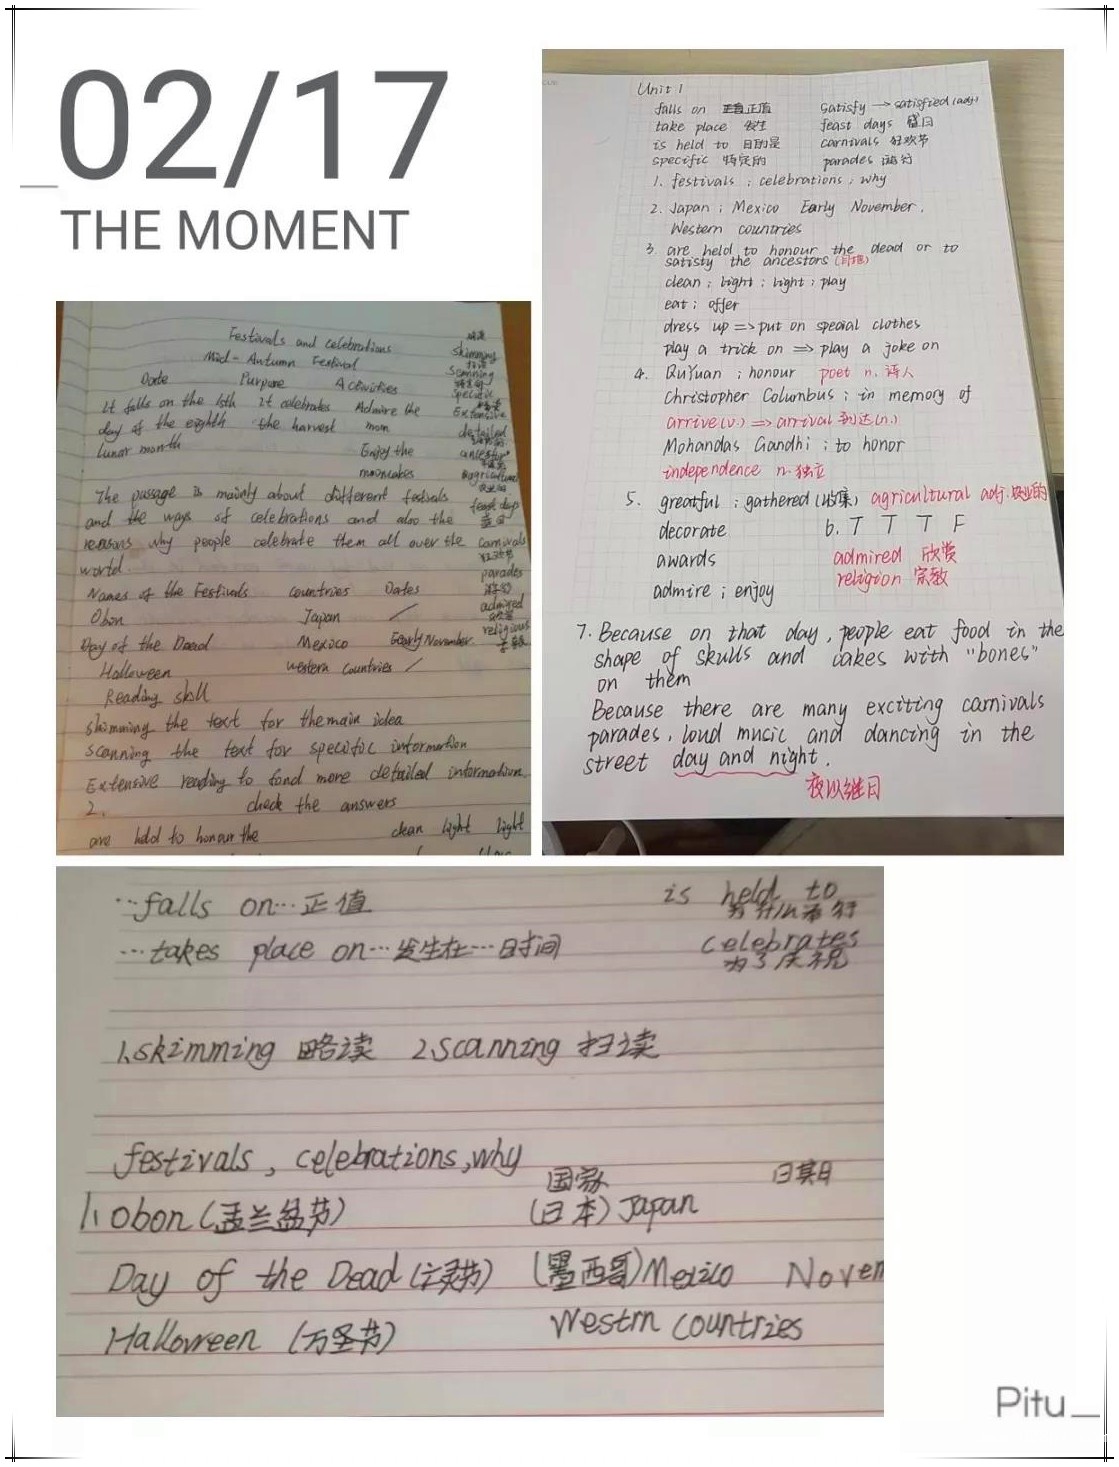 02/17
THE MOMENT
Festivals and celebrations
Mid-Autumn Festival
Date Purpure Activities
It falls on the 15th It celebrates Admire the
day of the eighth the harvest mom
lunar month Enjoy the
mooncakes
The passage is mainly about different festivals
and the ways of celebrations and also the
reasons why people celebrate them all over the
world.
Names of the Festivals countries Dates
Obon Japan /
Day of the Dead Mexico Early November
Halloween western countries /
Reading skill
skimming the text for the main idea
scanning the text for specific information
Extensive reading to fond more detailed information.
2. check the answers
are held to honour the clean light light
skimming
scanning
specific
Extensive
detailed
ancestor
agricultural
feast days
盛日
carnivals
狂欢节
parades
游行
admired
欣赏
religious
宗教
Unit 1
falls on 正值
take place 发生
is held to 目的是
specific 特定的
satisfy → satisfied (adj)
feast days 盛日
carnivals 狂欢节
parades 游行
1. festivals ; celebrations ; why
2. Japan ; Mexico Early November.
Western countries
3. are held to honour the dead or to
satisty the ancestors (目的)
clean ; light ; light ; play
eat ; offer
dress up => put on special clothes
play a trick on => play a joke on
4. QuYuan ; honour poet n. 诗人
Christopher Columbus ; in memory of
arrive (v.) => arrival 到达(n.)
Mohandas Gandhi ; to honor
independence n. 独立
5. greatful ; gathered (收集) agricultural adj. 农业的
decorate 6. T T T F
awards admired 欣赏
religion 宗教
admire ; enjoy
7. Because on that day, people eat food in the
shape of skulls and cakes with "bones"
on them
Because there are many exciting carnivals
parades, loud music and dancing in the
street day and night.
夜以继日
…falls on… 正值 is held to
…takes place on… 发生在…时间 celebrates
为了庆祝
1.skimming 略读 2.scanning 扫读
festivals, celebrations, why
国家 日期
1. obon (盂兰盆节) (日本) Japan
Day of the Dead (亡灵节) (墨西哥) Mexico Novem
Halloween (万圣节) Westrn countries
Pitu